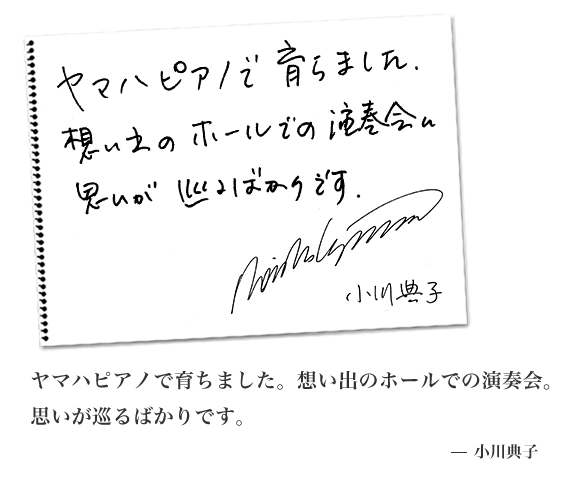 ヤマハピアノで育ちました.
想い出のホールでの演奏会。
思いが巡るばかりです.
小川典子
ヤマハピアノで育ちました。想い出のホールでの演奏会。
思いが巡るばかりです。
— 小川典子